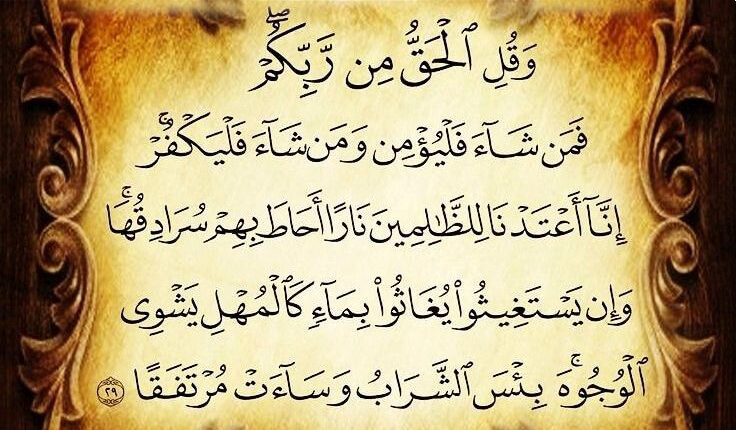 وَقُلِ ٱلْحَقُّ مِن رَّبِّكُمْ ۖ
فَمَن شَآءَ فَلْيُؤْمِن وَمَن شَآءَ فَلْيَكْفُرْ ۚ
إِنَّآ أَعْتَدْنَا لِلظَّٰلِمِينَ نَارًا أَحَاطَ بِهِمْ سُرَادِقُهَا ۚ
وَإِن يَسْتَغِيثُوا۟ يُغَاثُوا۟ بِمَآءٍ كَٱلْمُهْلِ يَشْوِى
ٱلْوُجُوهَ ۚ بِئْسَ ٱلشَّرَابُ وَسَآءَتْ مُرْتَفَقًا ٢٩